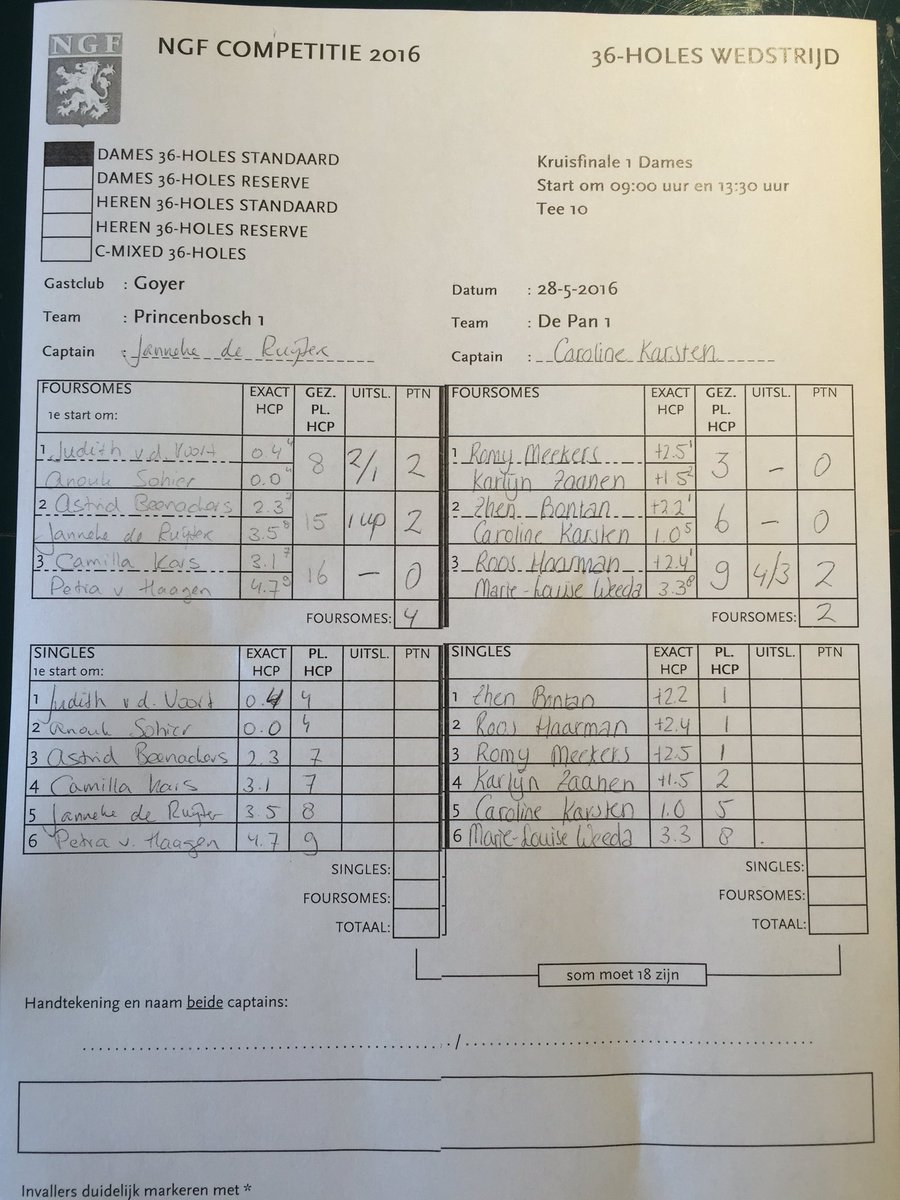 NGF
NGF COMPETITIE 2016 36-HOLES WEDSTRIJD
DAMES 36-HOLES STANDAARD
DAMES 36-HOLES RESERVE
HEREN 36-HOLES STANDAARD
HEREN 36-HOLES RESERVE
C-MIXED 36-HOLES
Kruisfinale 1 Dames
Start om 09:00 uur en 13:30 uur
Tee 10
Gastclub : Goyer
Team : Princenbosch 1
Captain : Janneke de Ruijter
Datum : 28-5-2016
Team : De Pan 1
Captain : Caroline Karsten
FOURSOMES EXACT HCP GEZ. PL. HCP UITSL. PTN
1e start om:
1 Judith v.d. Voort 0.4 4 8 2/1 2
Anouk Sohier 0.0 4
2 Astrid 2.3 7 15 1 up 2
Janneke de Ruijter 3.5 8
3 Camilla Kars 3.1 7 16 – 0
Petra v Haagen 4.7 9
FOURSOMES: 4
FOURSOMES EXACT HCP GEZ. PL. HCP UITSL. PTN
1 Romy Meekers +2.5 1 3 – 0
Karlijn Zaanen +1.5 2
2 Zhen Bontan +2.2 1 6 – 0
Caroline Karsten 1.0 5
3 Roos Haarman +2.4 1 9 4/3 2
Marie-Louise Weeda 3.3 8
FOURSOMES: 2
SINGLES EXACT HCP PL. HCP UITSL. PTN
1e start om:
1 Judith v d. Voort 0.4 4
2 Anouk Sohier 0.0 4
3 Astrid 2.3 7
4 Camilla Kars 3.1 7
5 Janneke de Ruijter 3.5 8
6 Petra v. Haagen 4.7 9
SINGLES:
FOURSOMES:
TOTAAL:
SINGLES EXACT HCP PL. HCP UITSL. PTN
1 Zhen Bontan +2.2 1
2 Roos Haarman +2.4 1
3 Romy Meekers +2.5 1
4 Karlijn Zaanen +1.5 2
5 Caroline Karsten 1.0 5
6 Marie-Louise Weeda 3.3 8
SINGLES:
FOURSOMES:
TOTAAL:
som moet 18 zijn
Handtekening en naam beide captains:
/
Invallers duidelijk markeren met *